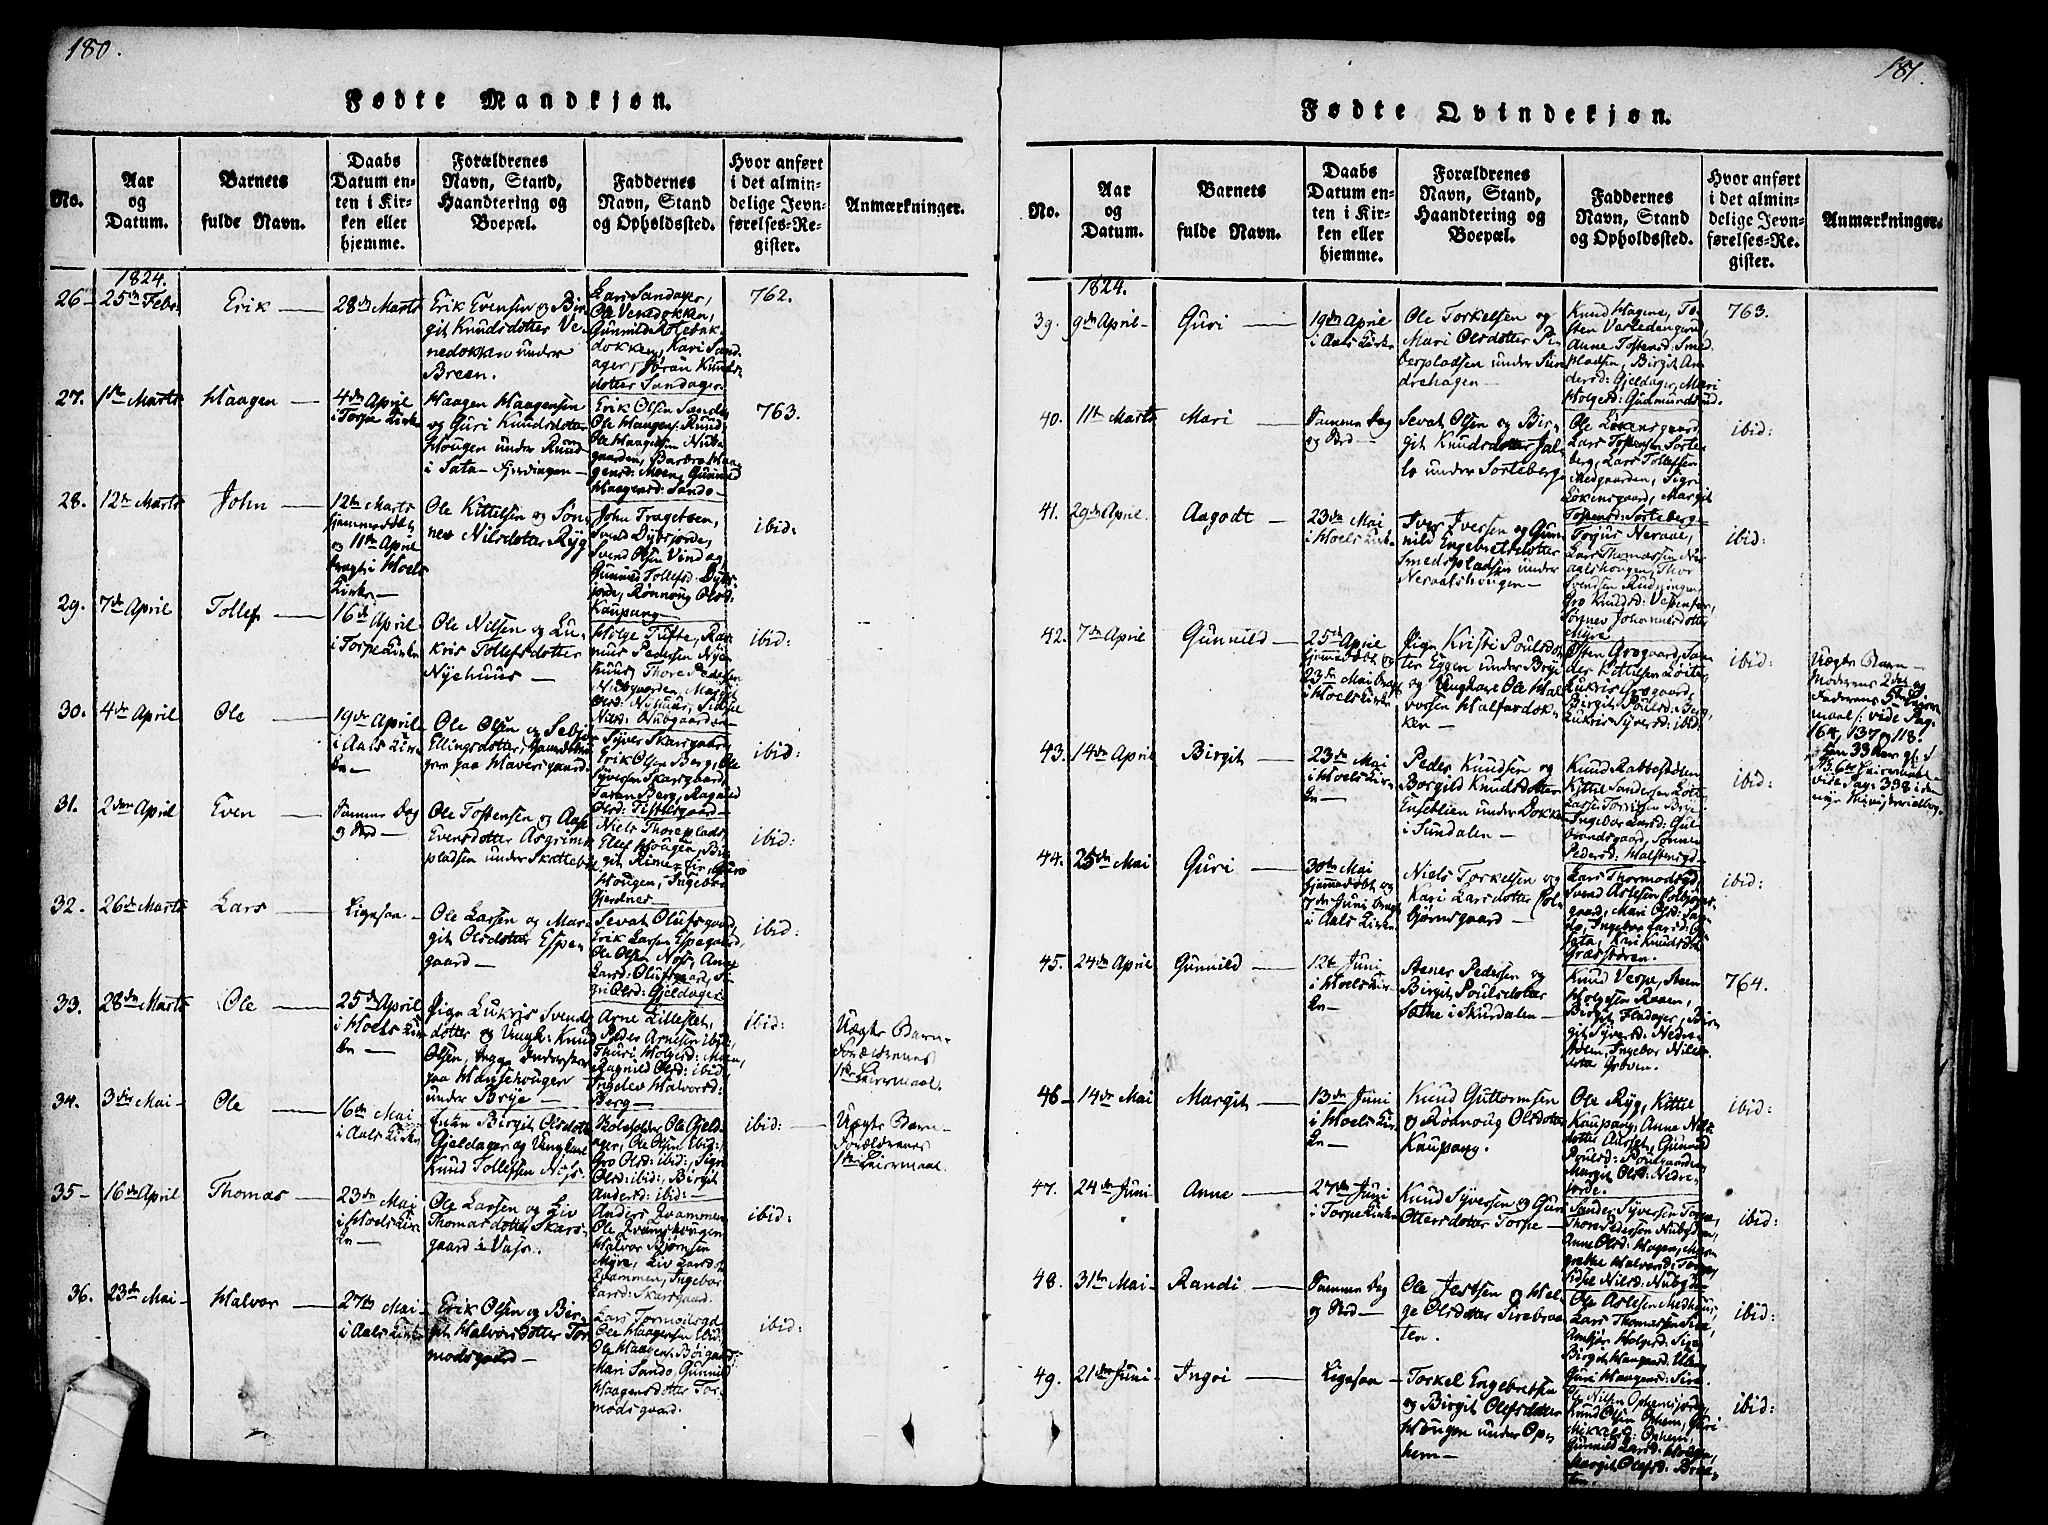 180.
Fødte Mandkjøn.
No.
Aar
og
Datum.
Barnets
fulde Navn.
Daabs
Datum en-
ten i Kir-
ken eller
hjemme.
Forældrenes
Navn, Stand,
Haandtering og
Boepæl.
Faddernes
Navn, Stand
og Opholdssted.
Hvor anført
i det almin-
delige Jevn-
førelses-Re-
gister.
Anmærkninger.
1824.
26 -
25de Febr.
Erik
28de Marts
Erik Evensen og Bir-
git Knudsdotter Ve-
nedokken under
Breen.
Lars Sandager,
Ole Venedokken,
Gunnild Rolebak-
dokken, Kari Sand-
ager, Jøran Knuds-
dotter Sandager
762.
27.
1ste Marts
Haagen
4de April
i Torpe Kirke
Haagen Haagensen
og Guri Knudsdotter
Hougen under Rund
i Sata-Fjerdingen -
Erik Olsen Sando
Ole Haagens: Rund
Ole Haagensen Nub-
gaarden, Barbro Haa-
gensd: Moen, Gunnild
Haagensd: Sando -
763.
28.
12te Marts
John
12te Marts
hjemmedøbt
og 11te April
bragt i Hoels
Kirke -
Ole Kittelsen og Søn-
nev Nilsdotter Ryg
John Tragetsen,
Svend Dybsjorde,
Svend Olsen Vindeg
Gunnild Tollefsd: Dybs-
jorde, Rønnoug Olsd:
Kaupang -
ibid:
29.
7de April
Tollef
16de April
i Torpe Kirke
Ole Nilsen og Lu-
kris Tollefsdotter
Nyehuus -
Holge Tufte, Ras-
mus Pedersen Nye-
huus, Thore Pedersen
Nubgaarden, Margit
Olsd: Nyhuus, Sidsel
Nilsd: Nubgaarden -
ibid:
30.
4de April
Ole
19de April
i Aals Kir-
ke -
Ole Olsen og Sebjør
Ellingsdotter, Gaardbru-
gere paa Haversgaard.
Syver Skarsgaard,
Erik Olsen Berg, Ole
Syversen Skarsgaard,
Taran Berg, Ragnild
Olsd: Tistelgaard -
ibid:
31.
2den April
Even
Samme Dag
og Sted -
Ole Tostensen og Aase
Evensdotter Asgrims
pladsen under Skattebøl
Niels Thoreplads,
Ellef Hougen, Bir-
git Rime,
Hougen, Ingebor
Gjerdnes -
ibid:
32.
26de Marts
Lars
Ligesaa -
Ole Larsen og Mar-
git Olsdotter Espe-
gaard -
Sevat Olufsgaard,
Erik Larsen Espegaard,
Ole Olsen Nos, Anne
Larsd: Olufsgaard, Si-
gri Olsd: Gjeldager
ibid:
33.
28de Marts
Ole
25de April
i Hoels Kir-
ke -
Pigen Lukris Svends-
dotter og Ungk: Knud
Olsen, begge Inderster
paa Hansehougen
under Brye -
Arne Lilleslet,
Peder Arnesen ibid:
Thuri Holgersd: Moen,
Ragnild Olsd: ibid:
Ingelev Halvorsd:
Berg -
ibid:
Uægte Barn -
Forældrenes
1ste Leiermaal.
34.
3die Mai -
Ole
16de Mai
i Aals Kirke
Enken Birgit Olsdotter
Gjeldager og Ungkarl
Knud Tollefsen Nos.
Ole Gjeld-
ager, Ole Olsen ibid:
Gro Olsd: ibid:, Sigri
Olsd: ibid:, Birgit
Andersd: ibid: -
ibid: -
Uægte Barn -
Forældrenes
1ste Leiermaal.
35 -
16de April
Thomas
23de Mai
i Hoels Kir-
ke -
Ole Larsen og Liv
Thomasdotter Skars-
gaard i Vass.
Anders Qvammen
Ole Qvamshougen
Halvor Bjørnsen
Myre, Liv Larsdotter
Qvammen, Ingebor
Larsd: Skarsgaard.
ibid:
36.
23de Mai -
Halvor
27de Mai -
i Aals Kirke
Erik Olsen og Bir-
git Halvorsdotter Tor-
modsgaard -
Lars Tormodsgd:
Ole Haagensen ibid:
Ole Haagens: Børgaard
Mari Sando, Gunnild
Haagensdotter Tor-
modsgaard.
ibid:
181.
Fødte Qvindekjøn.
No.
Aar
og
Datum.
Barnets
fulde Navn.
Daabs
Datum en-
ten i Kir-
ken eller
hjemme.
Forældrenes
Navn, Stand,
Haandtering og
Boepæl.
Faddernes
Navn, Stand
og Opholdssted.
Hvor anført
i det almin-
delige Jevn-
førelses-Re-
gister.
Anmærkninger.
1824.
39.
9de April -
Guri
19de April
i Aals Kirke
Ole Torkelsen og
Mari Olsdotter Pe-
berpladsen under Sun-
drehagen -
Knud Hagene, To-
sten Vesledengerud,
Anne Tostensd: Smed-
pladsen, Birgit An-
dersd: Gjeldager, Mari
Holgersd: Gudmundsrud.
763.
40.
11te Marts
Mari
Samme Dag
og Sted -
Sevat Olsen og Bir-
git Knudsdotter Jal-
lo under Sorteberg -
Ole Løkensgaard,
Lars Tostensen Sorte-
berg, Lars Tollefsen
Medgaarden, Sigri
Løkensgaard, Margit
Tostensd: Sorteberg -
ibid:
41.
29de April.
Aagodt
23de Mai
i Hoels Kirke
Iver Iversen og Gun-
nild Engebretsdotter
Smedspladsen under
Neraalshougen -
Torgus Neraal,
Lars Thomassen Ne-
raalshougen, Thor
Svendsen Rudningen,
Gro Knudsd: Vestenfor,
Sørgnev Johannesdotter
Myre
ibid:
42.
7de April
Gunnild
25de April
hjemmedøbt og
23de Mai bragt
i Hoels Kirke
Pigen Kristi Poulsdot-
ter Eggen under Brye
og Ungkarl Ole Hal-
vorsen Halfardok-
ken -
Østen Arogaard, San-
der Kittilsen Løite,
Lukris Arogaard,
Birgit Poulsd: Berg,
Lukris Syversd: ibid:
ibid:
Uægte Barn -
Moderens 2det og
Faderens 5te Leier-
maal /: vide Pag.
164, 137 og 118.
vide Pag: 338 i den
nye Ministerialbog.
43.
14de April
Birgit
23de Mai
i Hoels Kir-
ke -
Peder Knudsen og
Borgild Knudsdotter
Enseblien under Dokken
i Sundalen -
Knud Rabbestølen
Kittil Sandersen Løite
Lasse Torgilsen Brye
Ingebor Larsd: Gul-
brandsgaard, Sønnev
Pedersd: Halstensgd -
ibid:
44.
25de Mai
Guri
30te Mai
hjemmedøbt og
7de Juni bragt
i Aals Kirke
Niels Torkelsen og
Kari Larsdotter Kol-
bjørnsgaard -
Lars Thormodsgd,
Svend Aslesen Kolbjørns-
gaard, Mari Olsd: San-
do, Ingebor Larsd: Op-
sata, Kari Knudsdotter
Græsstøren.
ibid:
45.
24de April
Gunnild
12te Juni
i Hoels Kir-
ke -
Asner Pedersen og
Birgit Poulsdotter
Sathe i Skurdalen -
Knud Verpe, Sven
Holgesen Raaen,
Birgit Fledager, Bir-
git Syversd: Nedre-
støln, Ingebor Nils-
dotter Grøven.
764.
46 -
14de Mai
Margit
13de Juni
i Hoels Kir-
ke -
Knud Guttormsen
og Rønnoug Olsdotter
Kaupang.
Ole Ryg, Kittil
Kaupang, Anne Nils-
dotter Aurset, Gunnild
Poulsd: Poulgaarden,
Margit Olsd: Nedre-
jorde.
ibid:
47.
24de Juni
Anne
27de Juni
i Torpe Kirke
Knud Syversen og Guri
Ottersdotter Torpe -
Sander Syversen Torpe,
Thore Pedersen Nubgden,
Anne Olsd: Hagen, Mar-
grethe Halvorsd: Torpe,
Sidsel Nilsd: Nubgden
ibid:
48.
31te Mai -
Randi
Samme Dag
og Sted -
Ole Jestsen og Hel-
ge Olsdotter Sirebraa-
ten.
Ole Aslesen Medhuus,
Lars Thomassen Sire,
Ambjør Holgersd: Sire,
Birgit Haagensd: Uberg
Guri Haagensd: Sire.
ibid:
49.
21de Juni
Ingri
Ligesaa -
Torkel Engebretsen
og Birgit Olefsdotter
Hougen under Op-
hem -
Ole Nilsen Ophemsjorde,
Knud Olsen Ophem, Guri
Mikkelsd: Ophem,
Gunnild Larsd: Hougen,
Margit Olefsd: Braa-
ten.
ibid: